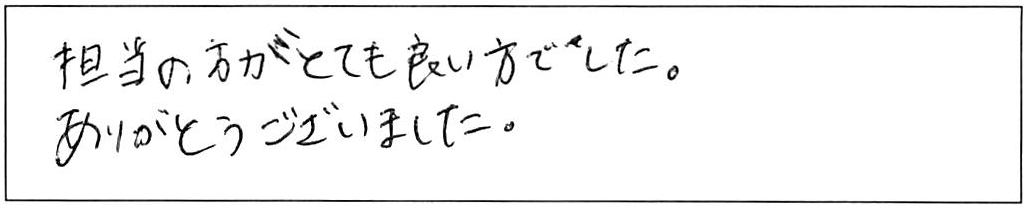 担当の方がとても良い方でした。
ありがとうございました。